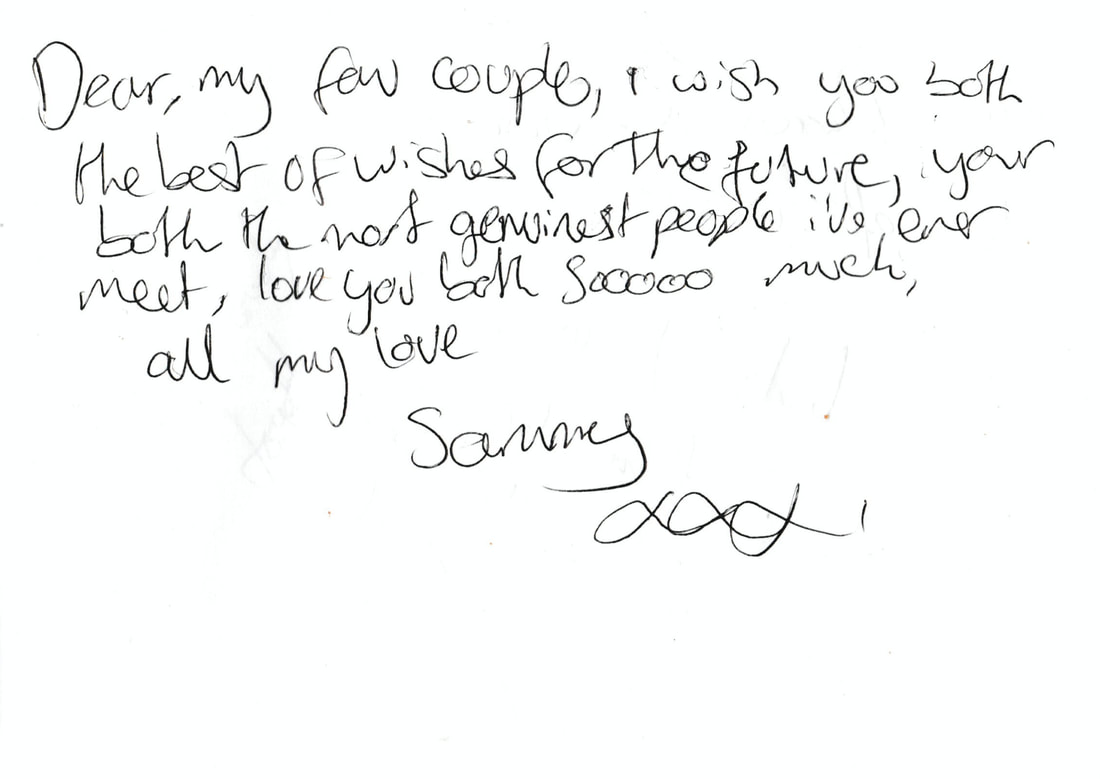 Dear, my fav couple, i wish you both
the best of wishes for the future, your
both the most genuinest people i've ever
meet, love you both Sooooo much,
all my love
Sammy
xxx